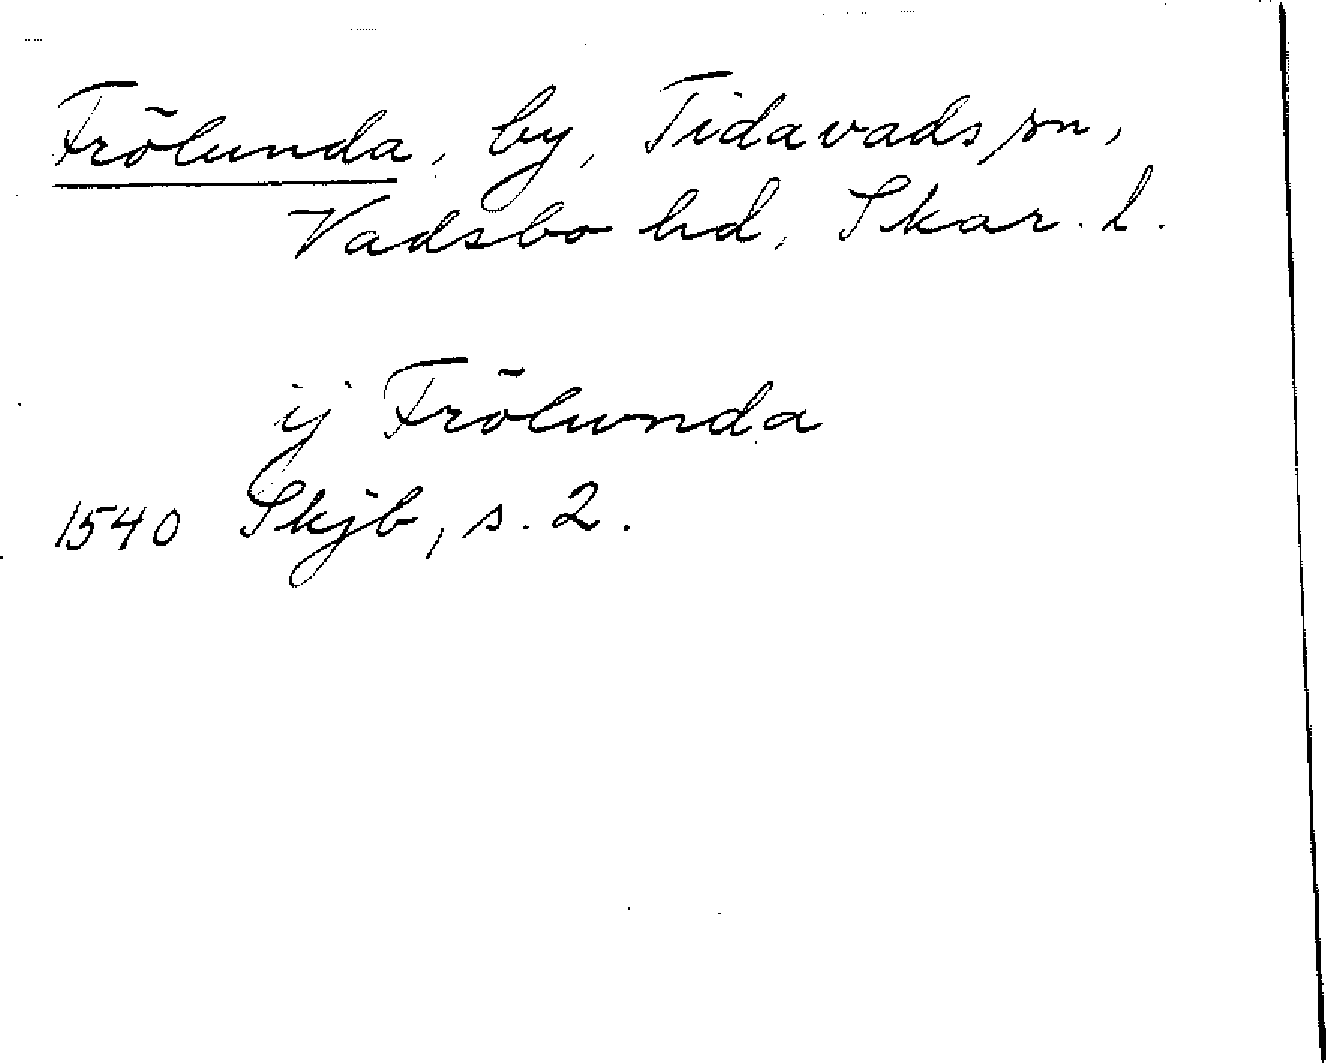 Frölunda, by, Tidavads sn,
Vadsbo hd, Skar. l.
ij Frölunda
1540 Skjb, s. 2.